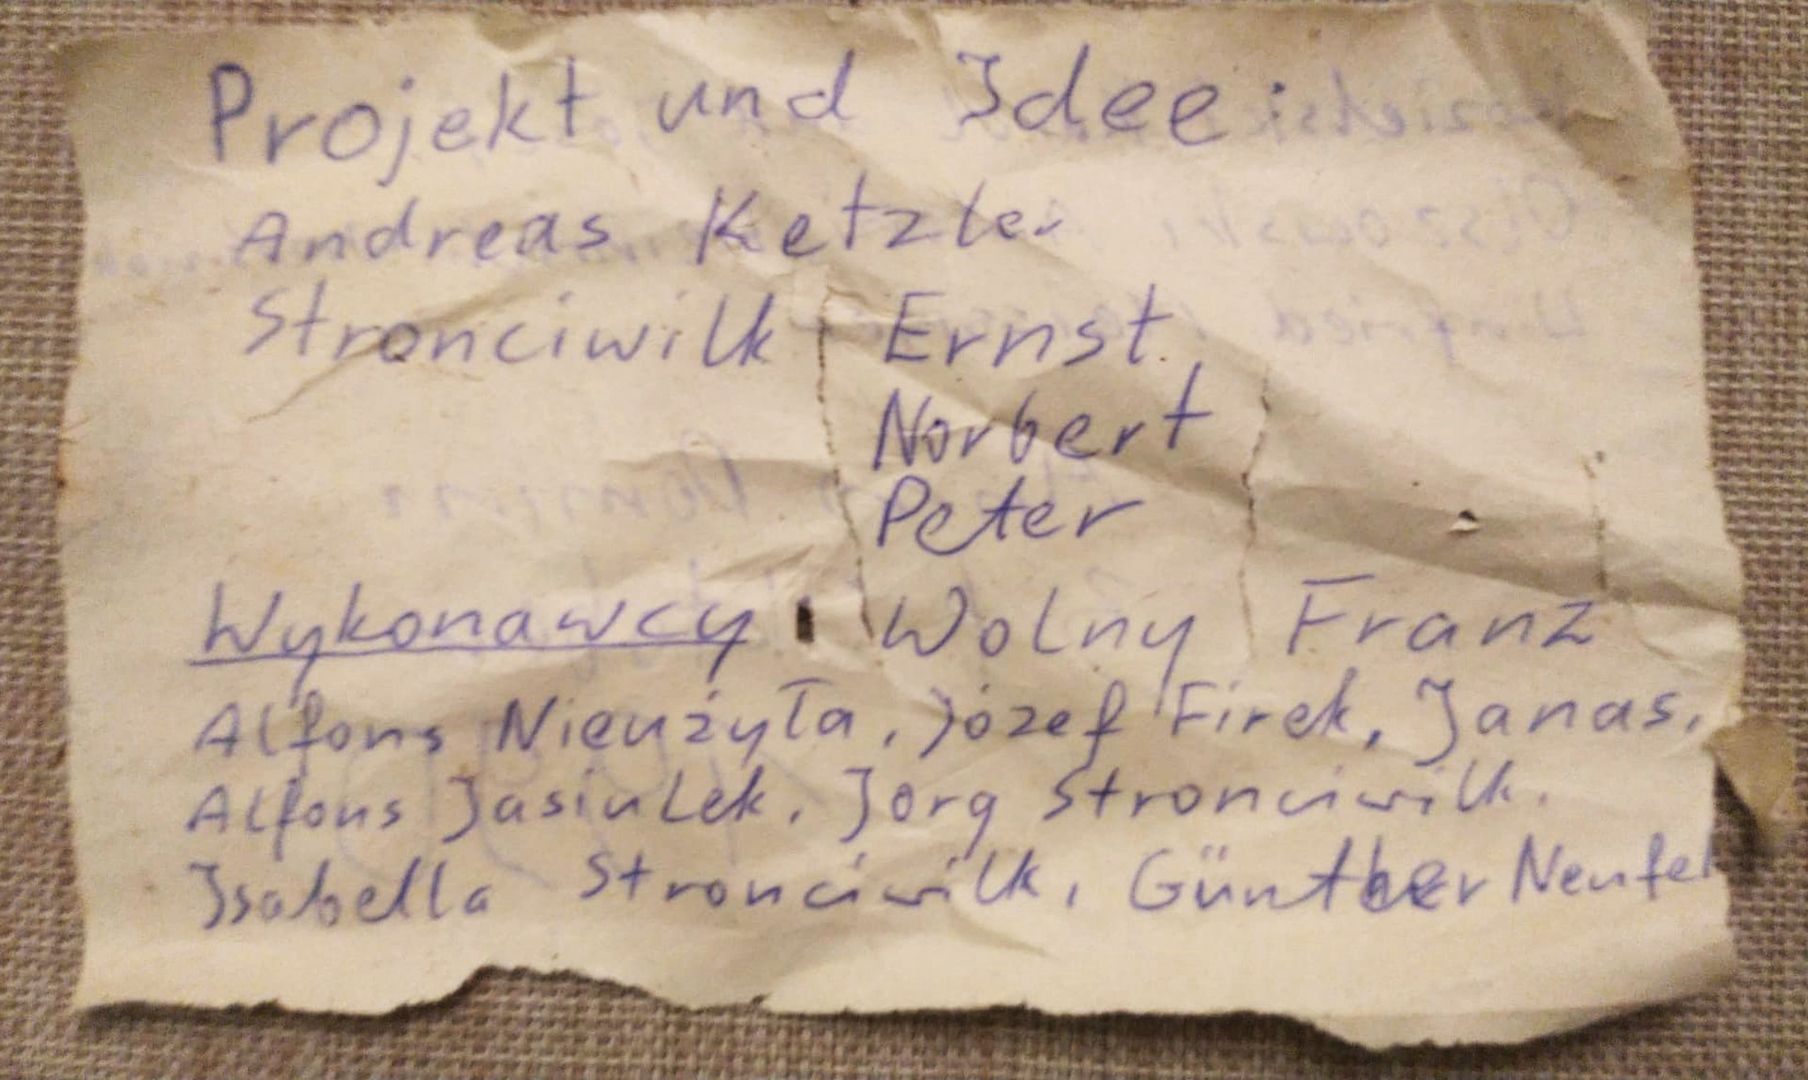 Projekt und Idee:
Andreas Ketzler
Stronciwilk Ernst
Norbert
Peter
Wykonawcy: Wolny Franz
Alfons Nieużyła, Józef Firek, Janas,
Alfons Jasiulek, Jorg Stronciwilk,
Isabella Stronciwilk, Günther Neufel